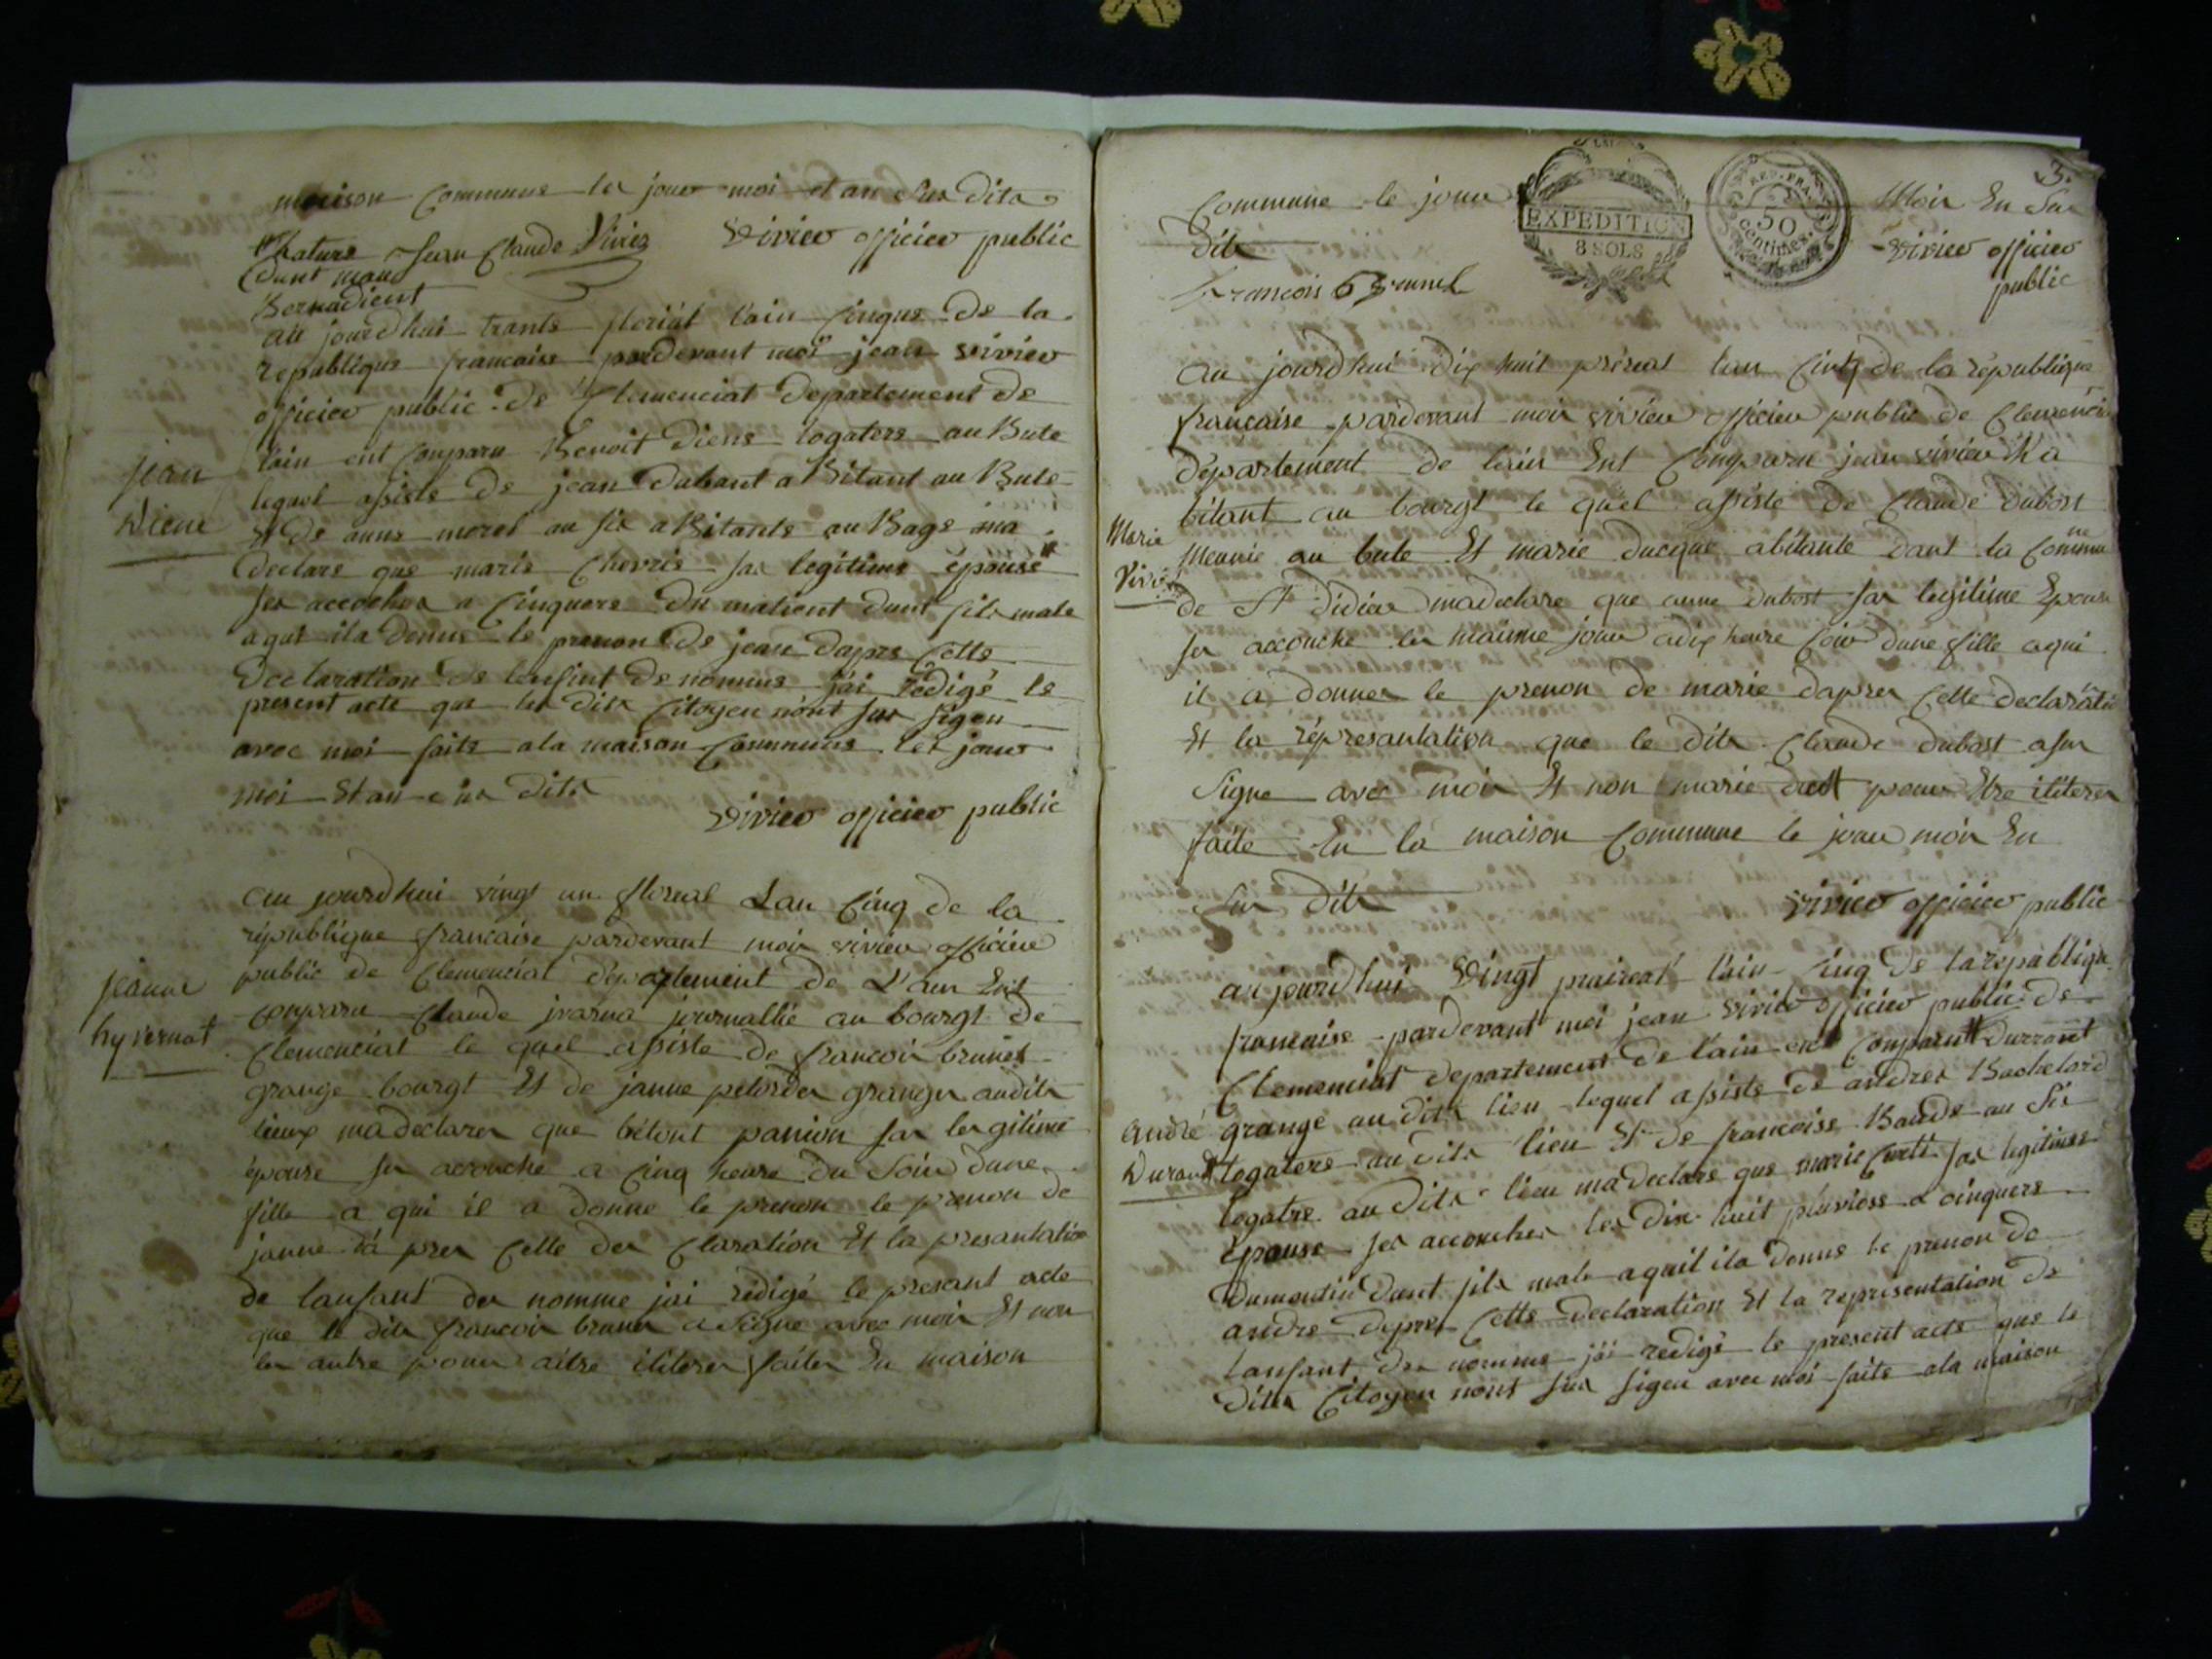 maison Commune les jour moi et an Sus Dits
Jean Claude Viviez Vivier officier public
Bernadient
au jourdhui trante florial lain Cinque de la
republique francaise pardevant moi jean vivier
officier public de Clemenciat Departement de
lain ent Conparu Benoit Diens logaters au Bute
lequel asiste de jean Dubant a Bitant au Bute
Jean
Diene
Et de anne morel au sit a Bitante au Bage ma
Declare que marie Chevris sas legitime épouse
ses accocher a Cinquere Du matient Dunt fils male
a qui ila Donne le prenon De jean Dapre Cette
Declaration De lenfint De nomme jai rédigé le
present acte que les Dits Citoyen nont sus signu
avec moi faite a la maison Commune les jour
moi Et an sus Dits
Vivier officier public
au jourdhui vingt un floreal Lan Cinq de la
république francaise pardevant moi vivier officier
public de Clemenciat département de L'ain Ent
Jeanne
hyvernat
conparu Claude jvarna journallié au bourgt de
Clemenciat le quel asiste de francoir brunet
grange bourgt Et de janne petorder granger audits
lieux ma declarer que bétont panion sas lergitime
épouse ser acouche a Cinq heure du Soir dune
fille a qui il a donne le prenon le prenon de
janne da pres Cette der Claration Et la presantation
de lanfant der nomme jai rédigé le presant acte
que le dits francoir bruner a Signe avec moir Et non
les autre pour aitre iliterer faiter En maison
3.
Commune le jour Moir En Sur
EXPEDITION
8 SOLS
REP. FRA.
50
centimes.
Dits
Vivier officier
public
francois Brunel
Au jourdhui dix huit préreal lan Cinq de la république
francaise pardevant moir vivier officier public de Clemencia
département de lain Ent Comparu jean vivier Ha
bitant au bourgt le quel asiste de Claude Dubost
Marie
Vivi
Meunié au bute Et marie Ducque abitante dant la Commune
de St Didier madeclare que anne Dubost sar legitime Epouse
ser accouche les maimme jour adix heure Soir dune fille aqui
il a donner le prenon de marie dapres Cette declaration
Et la répresantation que le dits Claude Dubost a sur
Signe avec moir Et non marie duct pour Etre iliterer
faite En la maison Commune le jour moir En
Sur Dits
Vivier officier public
au jourdhui Vingt praireal lain Cinq de larepublique
francaise pardevant moi jean vivier officier public de
Clemenciat Departement de lain ent Conparu Durrant
grange au dits lieu lequel asiste de andres Bachelard
André
Durand
logatere au dits lieu Et de francoise Baude au sit
logatre au Dits lieu madeclare que marie Curti sas legitime
épouse ses accoucher les Dix huit pluviose a cinquere
Dumentin Dunt fils male aquil ila Donne le prenon de
andre Depres Cette Declaration Et la representation De
lanfant der nomme jai rédigé le present acte que le
Dits Citoyen nont sus signu avec moi faite ala maison